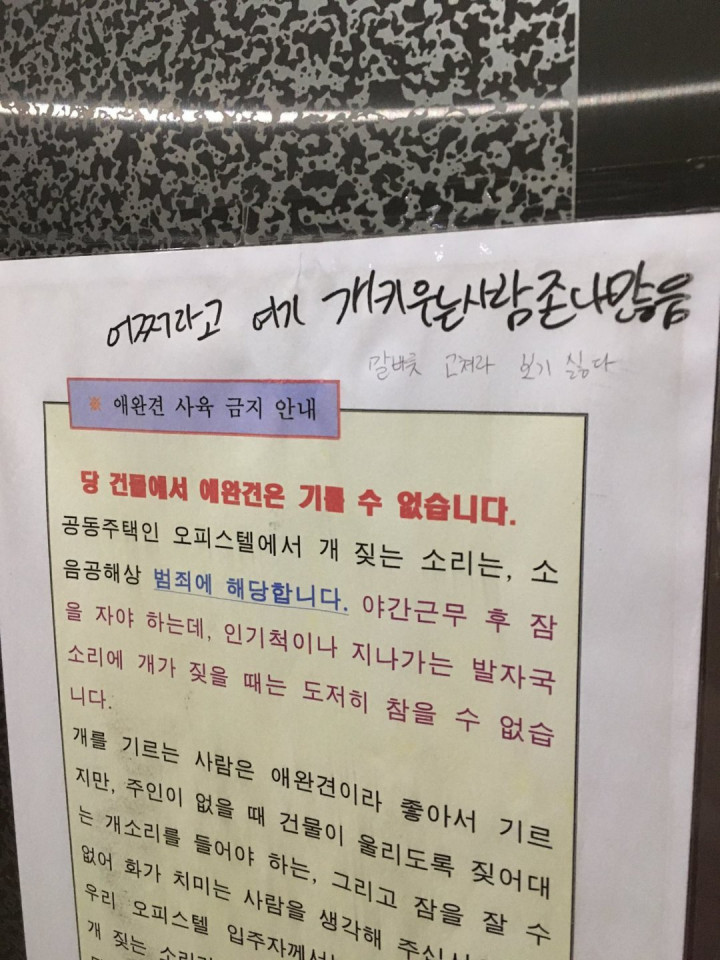 어쩌라고 여기 개키우는사람존나많음
말버릇 고쳐라 보기 싫다
※ 애완견 사육 금지 안내
당 건물에서 애완견은 기를 수 없습니다.
공동주택인 오피스텔에서 개 짖는 소리는, 소
음공해상 범죄에 해당합니다. 야간근무 후 잠
을 자야 하는데, 인기척이나 지나가는 발자국
소리에 개가 짖을 때는 도저히 참을 수 없습
니다.
개를 기르는 사람은 애완견이라 좋아서 기르
지만, 주인이 없을 때 건물이 울리도록 짖어대
는 개소리를 들어야 하는, 그리고 잠을 잘 수
없어 화가 치미는 사람을 생각해
우리 오피스텔
개 짖는